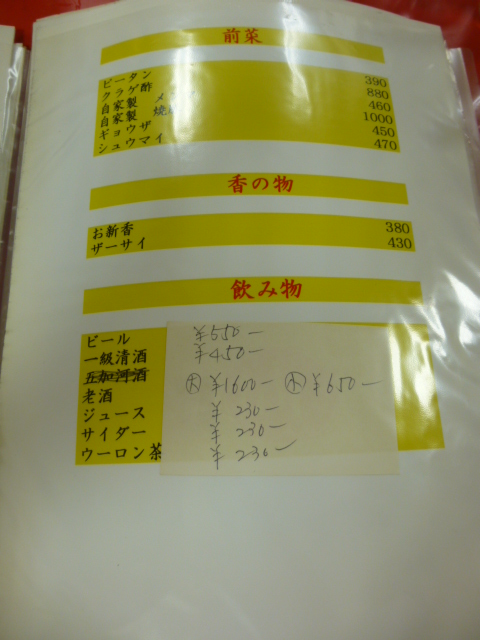 前菜
ピータン 390
クラゲ酢 880
自家製 メンマ 460
自家製 焼豚 1000
ギョウザ 450
シュウマイ 470
香の物
お新香 380
ザーサイ 430
飲み物
ビール ¥550-
一級清酒 ¥450-
五加河酒
老酒 大 ¥1600- 小 ¥650-
ジュース ¥230-
サイダー ¥230-
ウーロン茶 ¥230-